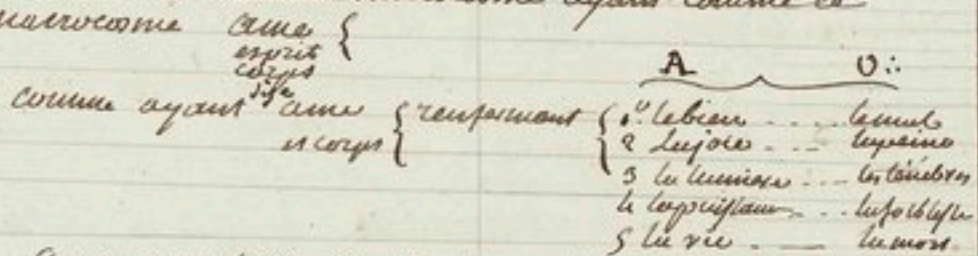 ayant comme le
macrocosme ame {
esprit
corps
A O∴
comme ayant ame { renfermant { 1° le bien .... le mal
et corps 2 la joie .... la peine
3 la lumiere ... les ténèbres
4 la puissance ... la foiblesse
5 la vie . — la mort